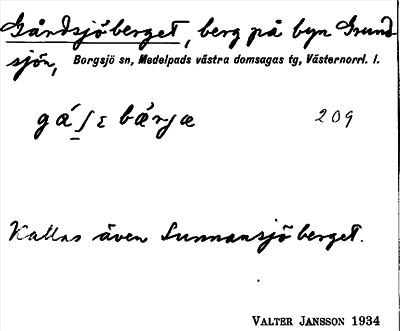 Gårdsjöberget, berg på byn Grund-
sjön, Borgsjö sn, Medelpads västra domsagas tg, Västernorrl. l.
209
Kallas även Sunnansjöberget.
VALTER JANSSON 1934